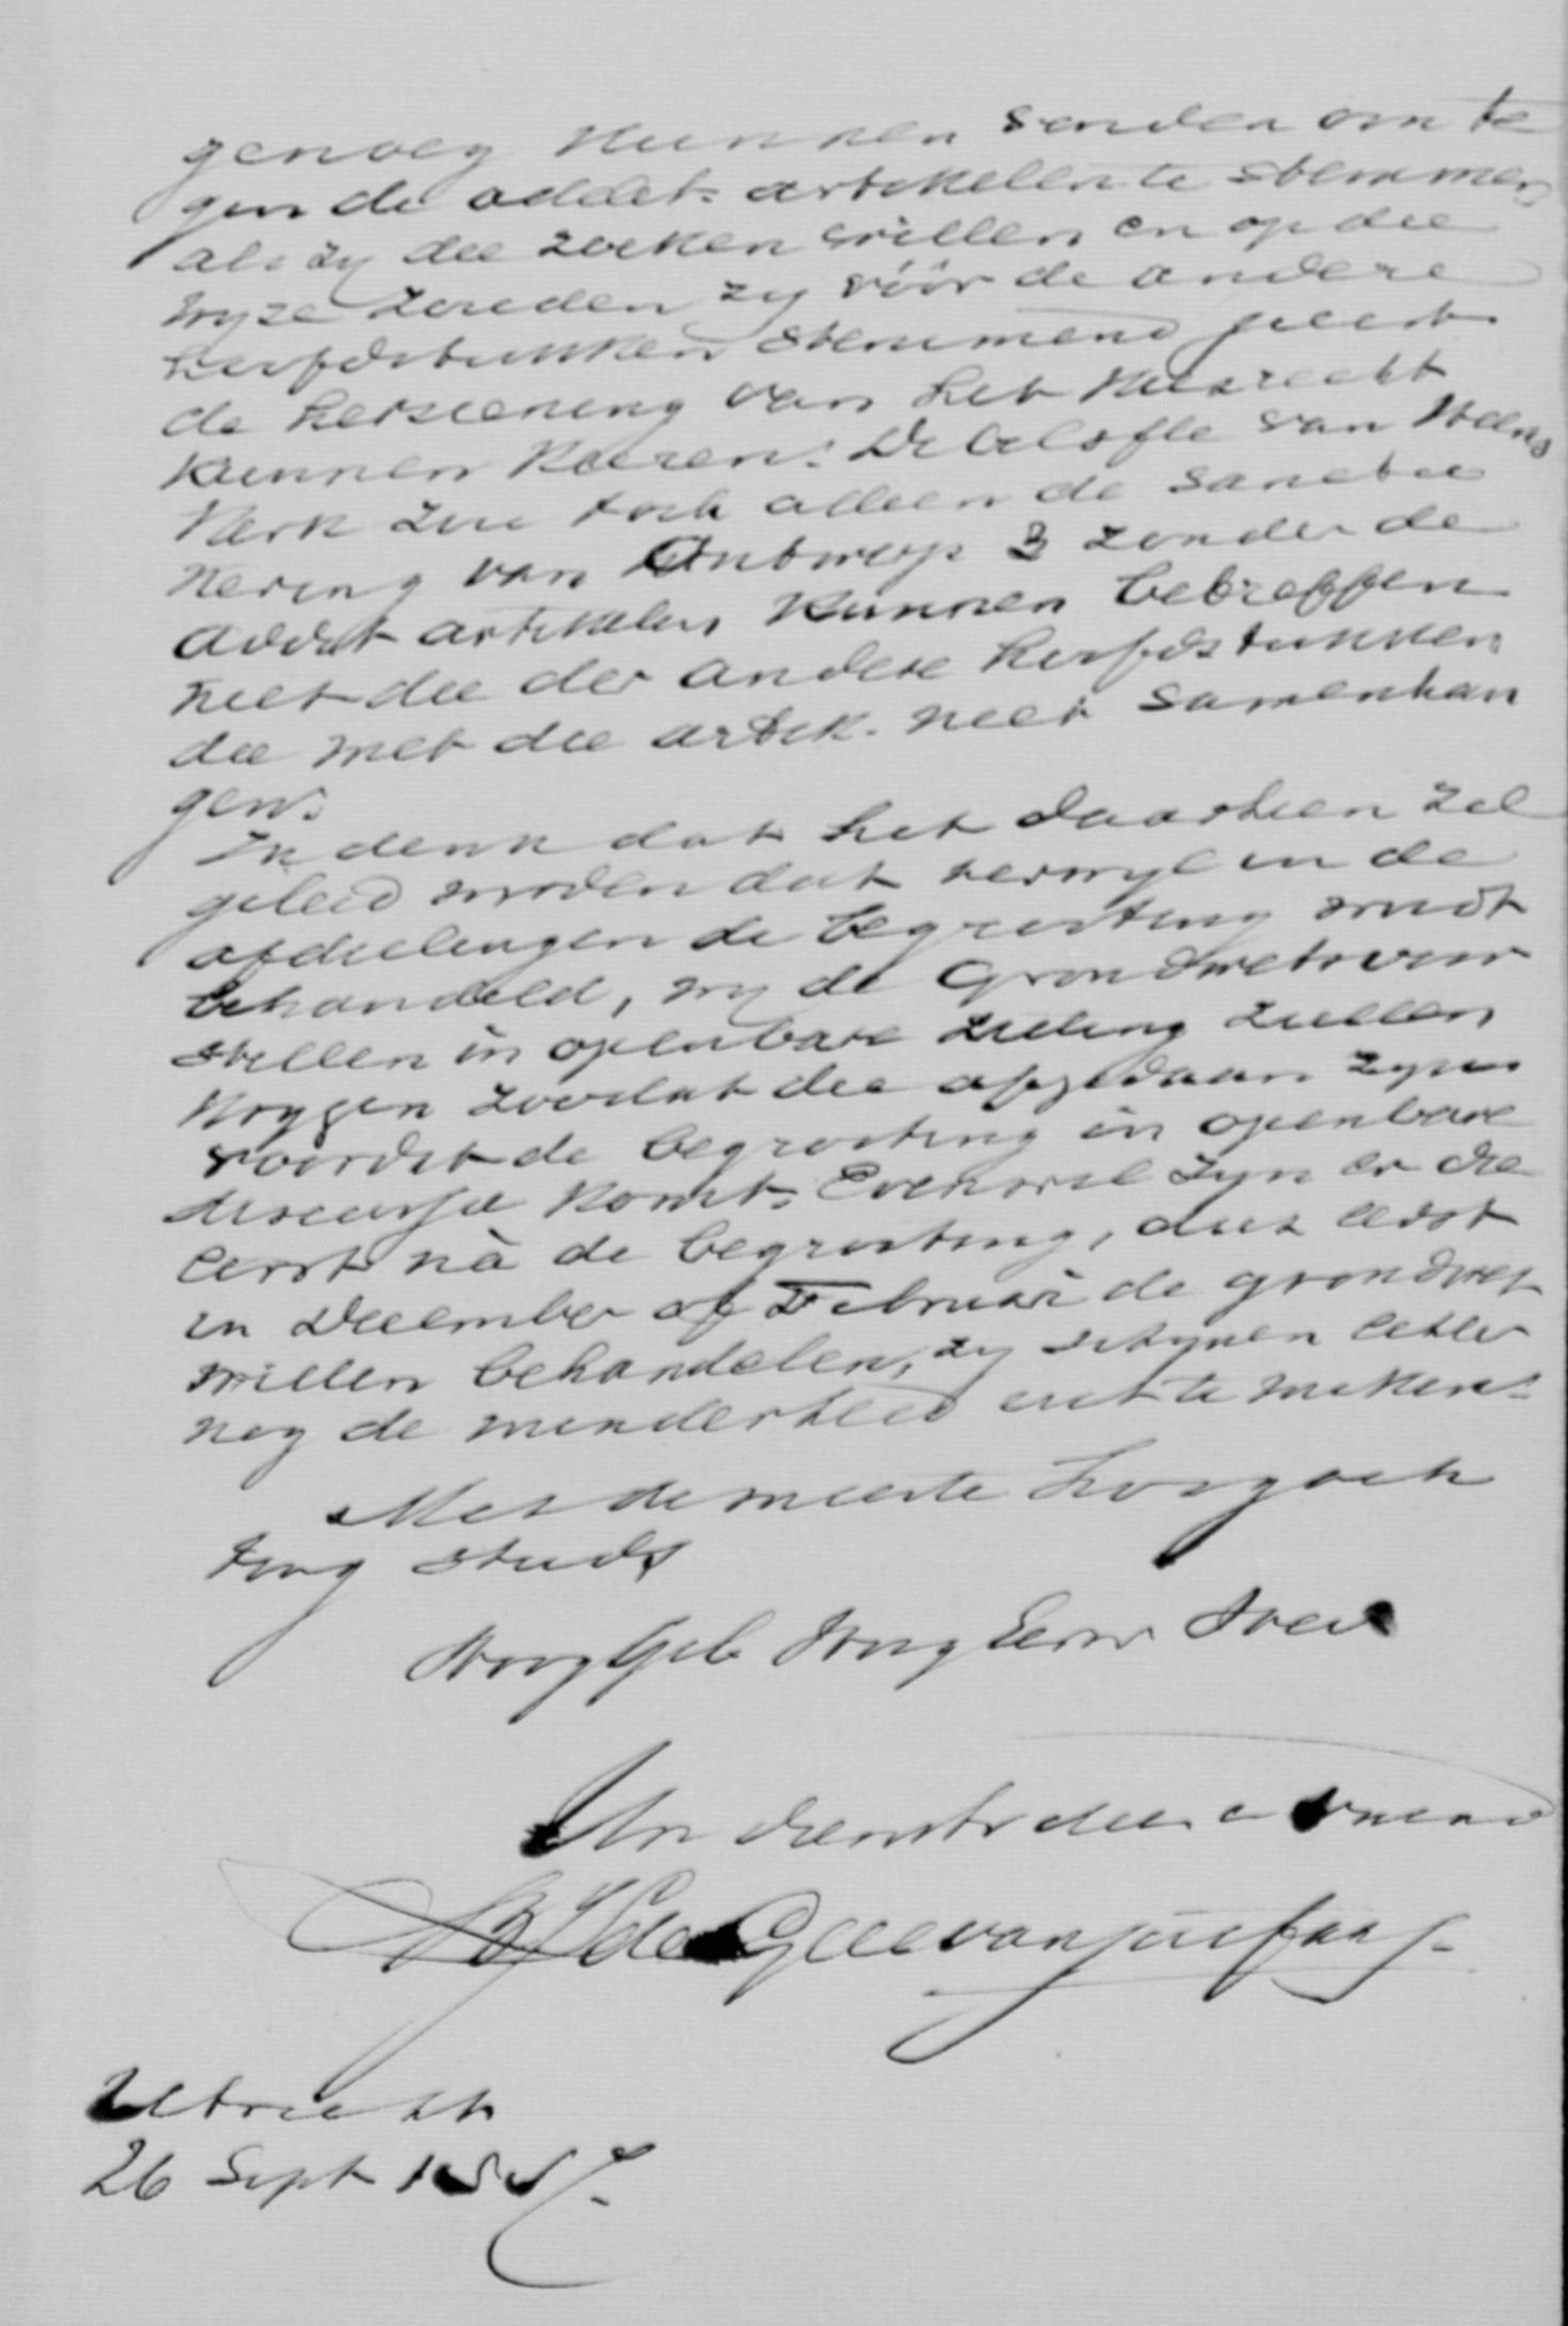 genoeg kunnen vinden om te
gen de addit. artikelen te stemmen
als zy die zoeken willen en op die
wyze zouden zy vóór de andere
hoofdstukken stemmend juist
de herziening van het kiesrecht
kunnen keeren. De belofte van Heems
kerk zou toch alleen de sanctio
neering van Ontwerp 3 zonder de
addit artikelen kunnen betreffen
niet die der andere hoofdstukken
die met die artik. niet samenhan
gen.
Ik denk dat het daarheen zal
geleid worden dat terwyl in de
afdeelingen de begrooting wordt
behandeld, wy de Grondwetvoor
stellen in openbare zitting zullen
krygen zoodat die afgedaan zyn
voordat de begrooting in openbare
discussie komt. Evenwel zyn er die
eerst nà de begrooting, dus eerst
in December of Februari de grondwet
willen behandelen, zy schynen echter
nog de minderheid uit te maken.
Met de meeste hoogach
ting steeds
HoogGeb HoogGel Heer
Uw dienstv. dien. en vriend
B J L de Geer van Jutfaas
Utrecht
26 Sept